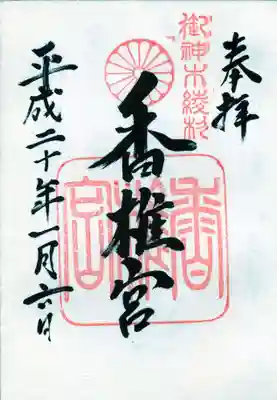 奉拝
御神木綾杉
香椎宮
平成二十年一月六日